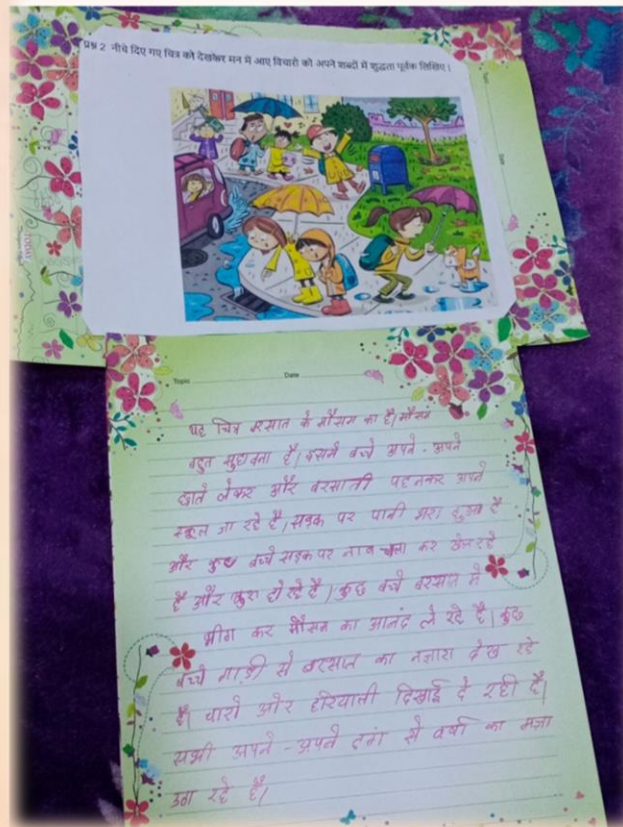 प्रश्न 2 नीचे दिए गए चित्र को देखकर मन में आए विचारों को अपने शब्दों में शुद्धता पूर्वक लिखिए।
Topic
Date
TODAY
Topic Date
यह चित्र बरसात के मौसम का है। मौसम
बहुत सुहावना है। इसमें बच्चे अपने - अपने
छाते लेकर और बरसाती पहनकर अपने
स्कूल जा रहे है, सड़क पर पानी भरा हुआ है
और कुछ बच्चे सड़क पर नाव चला कर खेल रहे
है और खुश हो रहे है। कुछ बच्चे बरसात में
भीग कर मौसम का आनंद ले रहे है। कुछ
बच्चे गाड़ी से बरसात का नज़ारा देख रहे
है। चारो ओर हरियाली दिखाई दे रही है।
सभी अपने - अपने ढंग से वर्षा का मज़ा
उठा रहे है।